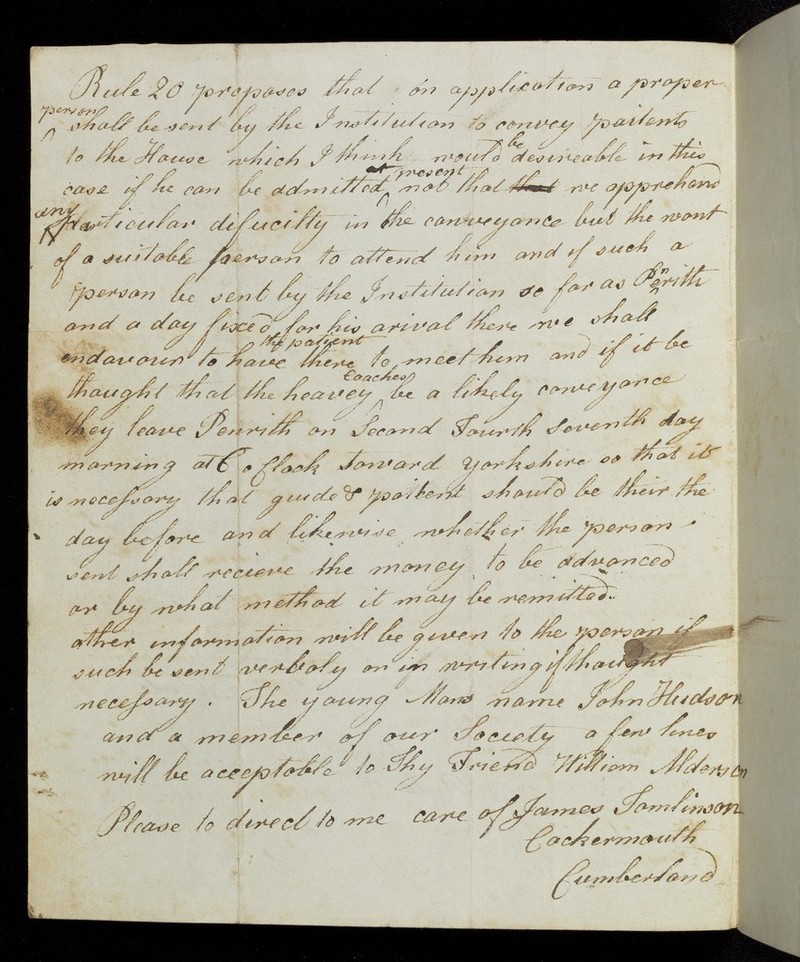 Rule 20 proposes that on application a proper
person
shall be sent by the Institution to convey paitents
to the House which I think would be desireable in this
case if he can be admitted at present not that that we apprehend
any
particular difucilty in the conveyance but the want
of a suitable person to attend him and if such a
person be sent by the Institution so far as Pnrith
and a day fixed for his arival there we shall
endavour to have the patient there to meet him and if it be
thought that the heavey Coaches be a likely conveyance
they leave Penrith on Second Fourth Seventh day
morning at 6 oClock toward yorkshire so that it
is necessary that guide & paitent should be their the
day before and likewise whether the person
sent shall recieve the money to be advanced
or by what method it may be remitted.
other information will be given to the person if
such be sent verbaly or in writing if thought
necessary. The young Mans name John Hudson
and a member of our Society a few lines
will be acceptable to Thy Friend William Alderson
Please to direct to me care of James Tomlinson
Cockermouth
Cumberland